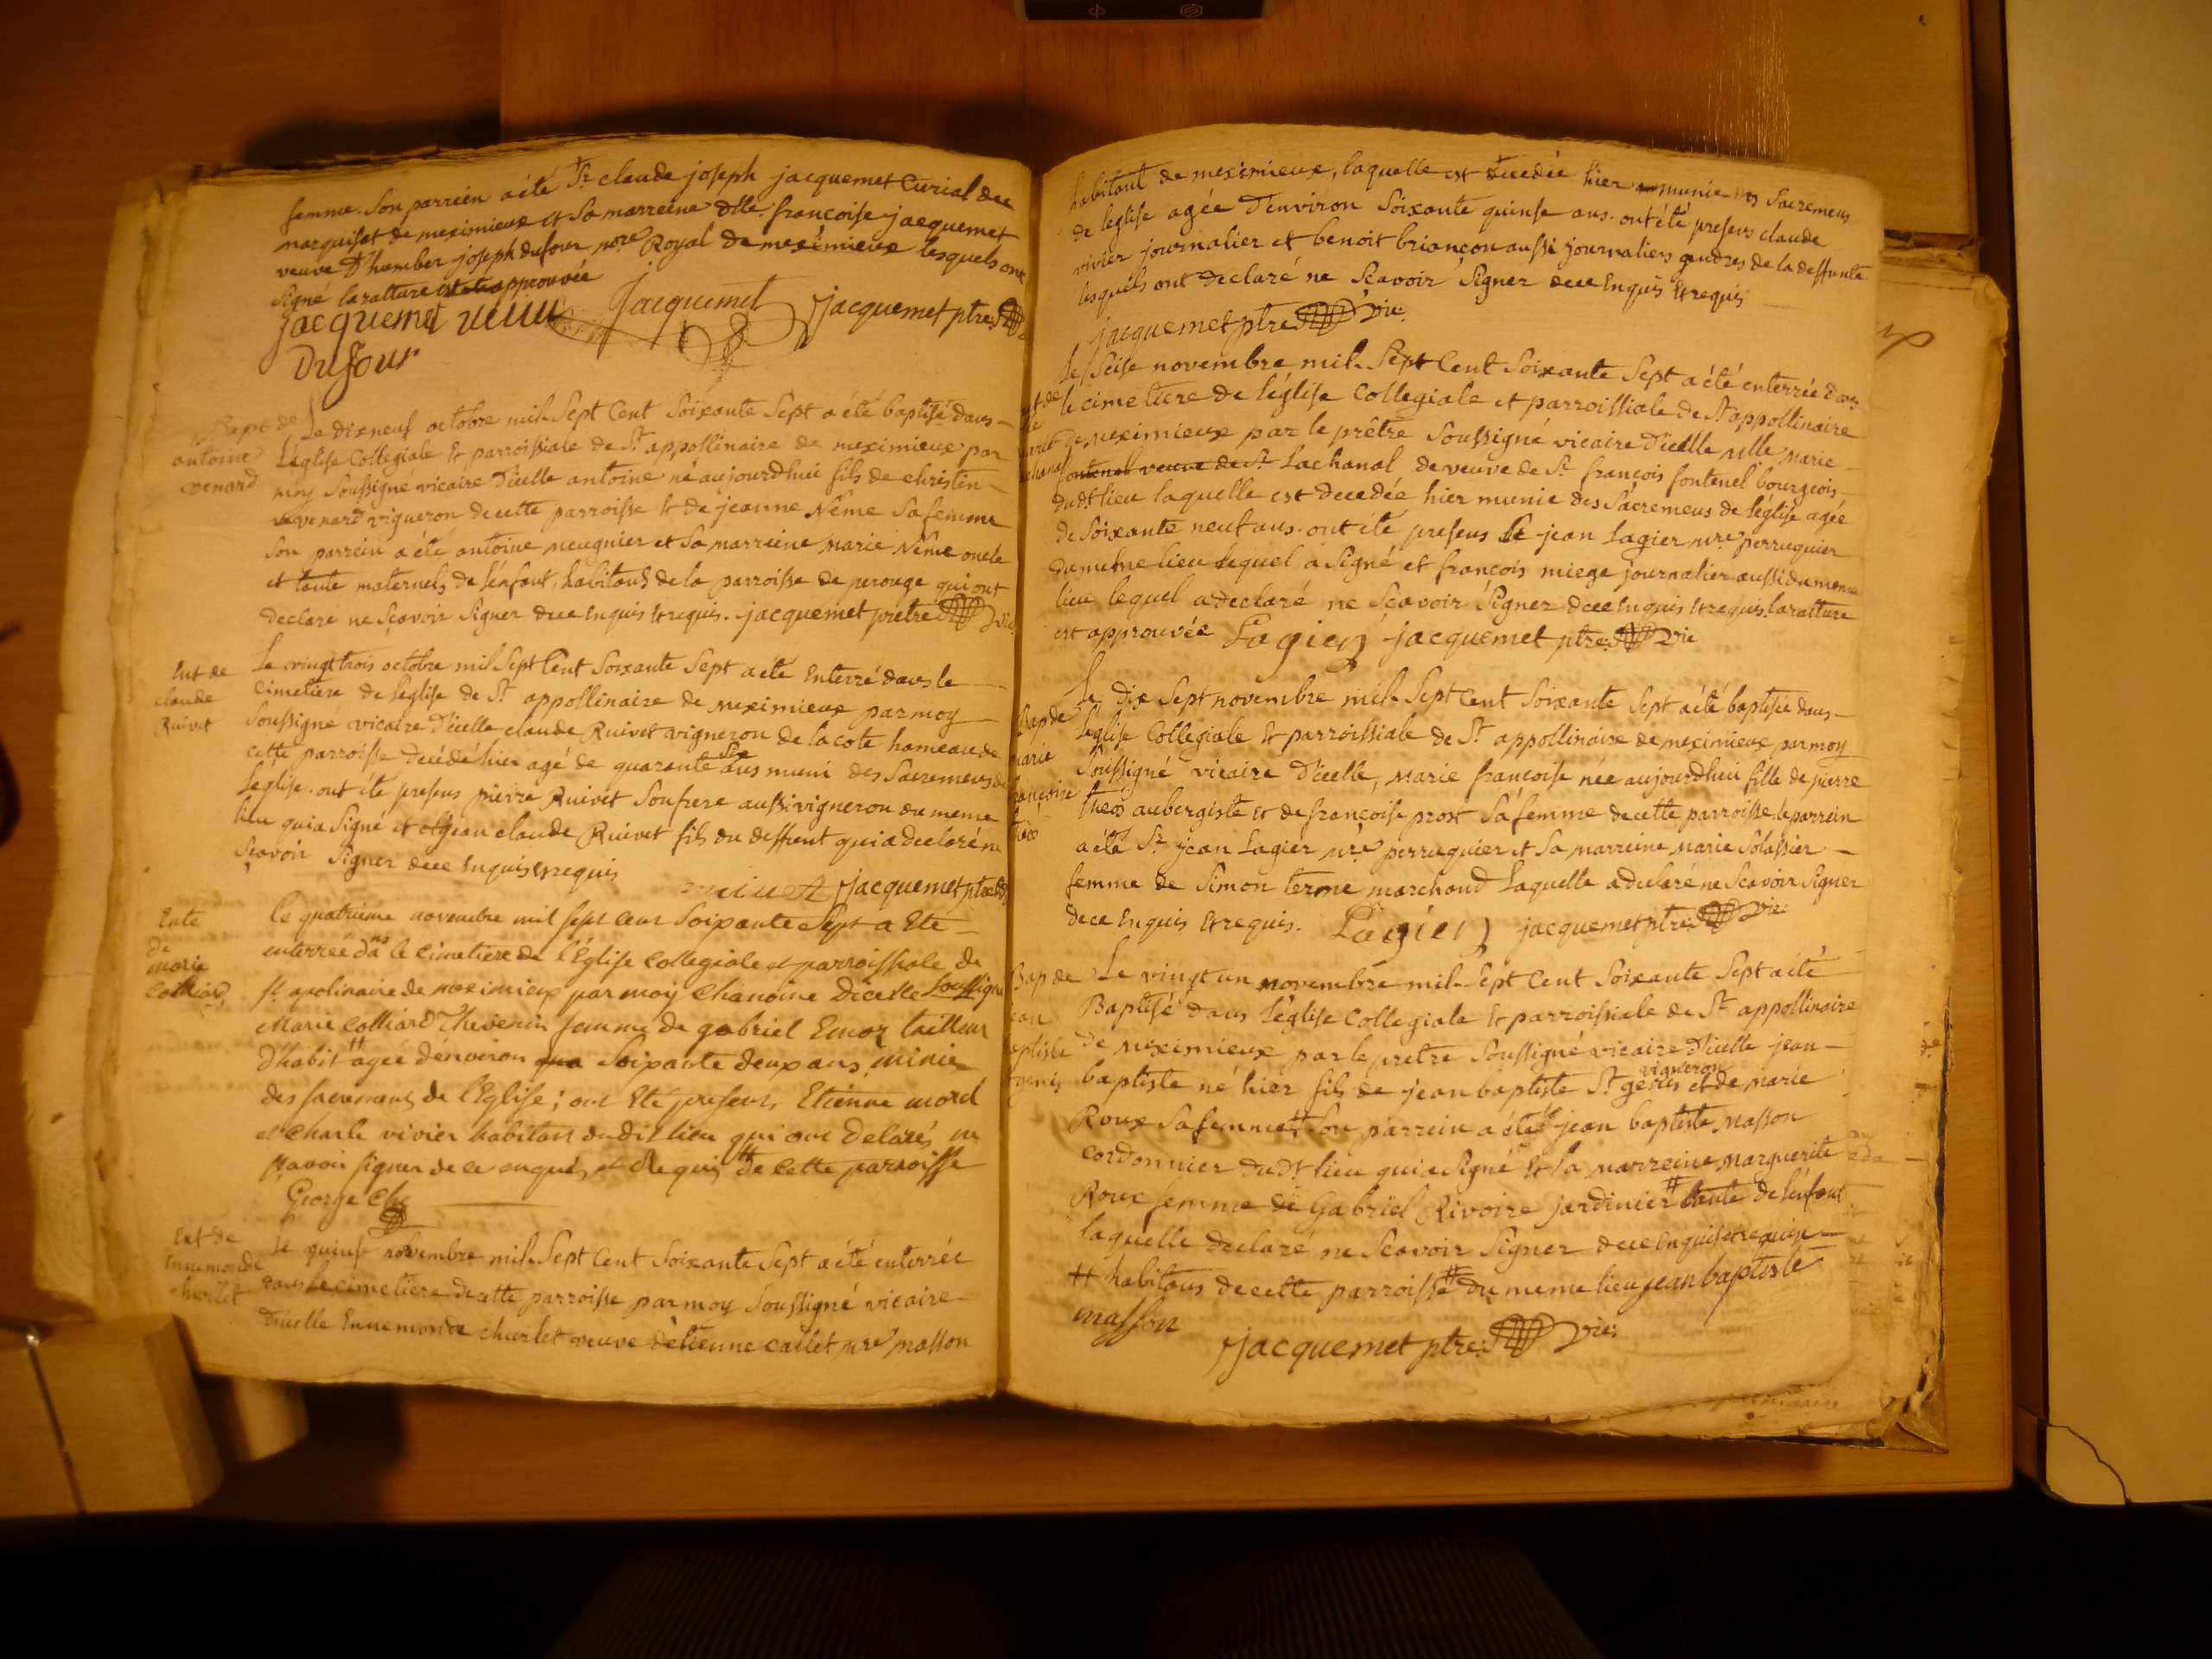 femme. Son parrein a été Sr. claude joseph jacquemet Curial du
marquisat de meximieux et Sa marreine dlle. francoise jacquemet
veuve D'humber joseph dufour nore Royal de meximieux lesquels ont
Signé laratture approuvée
jacquemet veuve Jacquemet jacquemet ptre
Dufour
Bapt de
antoine
venard
Le dixneuf octobre mil Sept Cent Soixante Sept a été baptisé dans
l'église Collegiale et parroissiale de St. appollinaire de meximieux par
moy Soussigné vicaire D'icelle antoine né aujourdhui fils de christin
venard vigneron de cette parroisse et de jeanne Néme Sa femme
Son parrein a été antoine meugnier et Sa marreine Marie Néme oncle
et tante maternels de l'enfant, habitans de la parroisse de perouge qui ont
declaré ne Scavoir Signer dece Enquis Et requis. jacquemet prêtre vic:
Ent de
claude
Ruivet
Le vingt trois octobre mil Sept Cent Soixante Sept a été Enterré dans le
Cimetiere de l'église de St. appollinaire de meximieux par moy
Soussigné vicaire D'icelle claude Ruivet vigneron de la cote hameau de
cette parroisse decédé hier agé de quarante Six ans muni des Sacremens de
L'eglise. ont été presens pierre Ruivet Son frere aussi vigneron du meme
lieu qui a Signé et jean claude Ruivet fils du deffunt qui a declaré ne
Scavoir Signer dece Enquis Et requis
ruivet jacquemet ptre
Ente
de
marie
Colliard
le quatrieme novembre mil sept cent Soixante Sept a Eté
enterrée dans le Cimetiere de l'Eglise Collegiale et parroissiale de
st. apolinaire de meximieux par moy Chanoine D'icelle Soussigné
Marie Colliard Thevenin femme de gabriel Emoz tailleur
D'habit # agée d'environ qua Soixante deux ans, minie
des sacremens de l'Eglise; ont Eté presens, Etienne mord
et Charle vivier habitans dudit lieu qui ont delarés ne
scavoir signer de ce enqués et Requis # de Cette parroisse
George Che
Ent de
Ennemonde
churlet
le quinse novembre mil Sept Cent Soixante Sept a été enterrée
dans le cimetiere de cette parroisse par moy Soussigné vicaire
D'icelle Ennemonde churlet veuve d'etienne callet mre masson
habitant de meximieux, laquelle est decedée hier munie des Sacremens
de l'eglise agée D'environ Soixante quinse ans. ont été presens claude
vivier journalier et benoit briancon aussi journaliers gendres de la deffunte
lesquels ont declaré ne Scavoir Signer dece Enquis Et requis
jacquemet ptre vic:
Le Seise novembre mil Sept Cent Soixante Sept a été enterrée dans
le cimetiere de l'église Collegiale et parroissiale de St. appollinaire
de meximieux par le prêtre Soussigné vicaire D'icelle Marie
fontenel veuve de Sr. Lachanal de veuve de Sr. francois fontenel bourgeois
dudt lieu laquelle est decedée hier munie des Sacremens de l'église agée
de Soixante neuf ans. ont été presens Sr. jean Lagier mre. perruquier
du meme lieu lequel a Signé et francois miege journalier aussi du meme
lieu lequel a declaré ne Scavoir Signer dece Enquis Et requis. laratture
est approuvée Lagier jacquemet ptre vic
Bap de
marie
francoise
theos
Le dix Sept novembre mil Sept Cent Soixante Sept a été baptisée dans
l'église Collegiale Et parroissiale de St. appollinaire de meximieux par moy
Soussigné vicaire D'icelle, Marie francoise née aujourdhui fille de pierre
theos aubergiste et de francoise prost Sa femme de cette parroisse. le parrein
a été Sr. jean Lagier mre. perruquier et Sa marreine Marie Solassier
femme de Simon terme marchand Laquelle a declaré ne Scavoir Signer
dece Enquis Et requis. Lagier jacquemet ptre vic:
Bap de
jean
baptiste
Le vingt un novembre mil Sept Cent Soixante Sept a été
Baptisé dans l'église Collegiale Et parroissiale de St. appollinaire
de meximieux par le pretre Soussigné vicaire D'icelle jean
vigneron
baptiste né hier fils de jean baptiste St. genis et de Marie
Roux Sa femme # Son parrein a été jean baptiste Masson
cordonnier dudt lieu qui a Signé Et Sa marreine Marguerite
Roux femme de Gabriël Rivoire jardinier # tante de l'enfant
laquelle declaré ne Scavoir Signer dece Enquise et requise
# habitans de cette parroisse # du meme lieu jean baptiste
masson
jacquemet ptre vic: